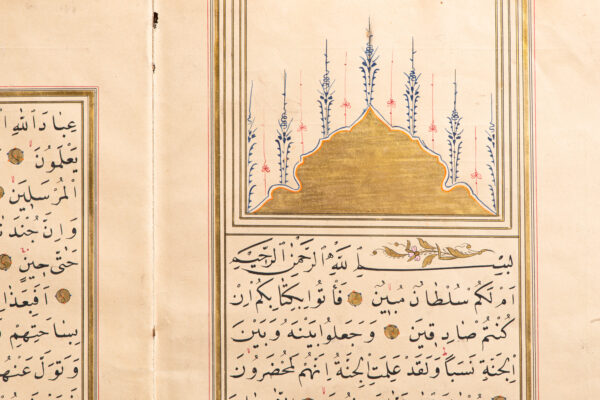 بِسْــمِ اللّٰهِ الرَّحْمٰنِ الرَّحِيمِ
اَمْ لَكُمْ سُلْطَانٌ مُبِينٌ فَأْتُوا بِكِتَابِكُمْ اِنْ
كُنْتُمْ صَادِقِينَ وَجَعَلُوا بَيْنَهُ وَبَيْنَ
الْجِنَّةِ نَسَبًا وَلَقَدْ عَلِمَتِ الْجِنَّةُ اِنَّهُمْ لَمُحْضَرُونَ
عِبَادَ اللّٰهِ
يَعْلَمُونَ
الْمُرْسَلِينَ
وَاِنَّ جُنْدَنَا
حَتّٰى حِينٍ
اَفَبِعَذَا
بِسَاحَتِهِمْ
وَتَوَلَّ عَنْهُمْ